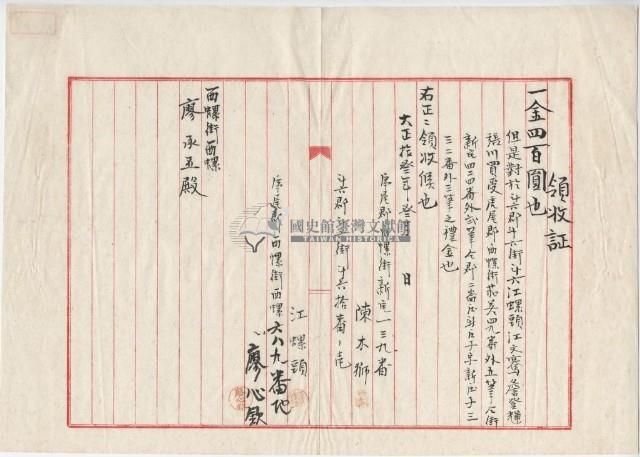 領收証
一金四百圓也
但是對於斗六郡斗六街斗六江螺頭江文鶯詹登輝
張川買受虎尾郡西螺街茄苳四九番外五筆仝街
新宅四二番外貳筆仝郡二崙庄
三二番外三筆之禮金也
右正ニ領收候也
大正拾參年參月 日
虎尾郡西螺街新宅一三九番
陳木獅
斗六郡斗六街斗六拾番ノ壱
江螺頭
虎尾郡西螺街西螺六八九番地
廖心欽
西螺街西螺
廖承丕殿
國史館臺灣文獻館
TAIWAN HISTORICA